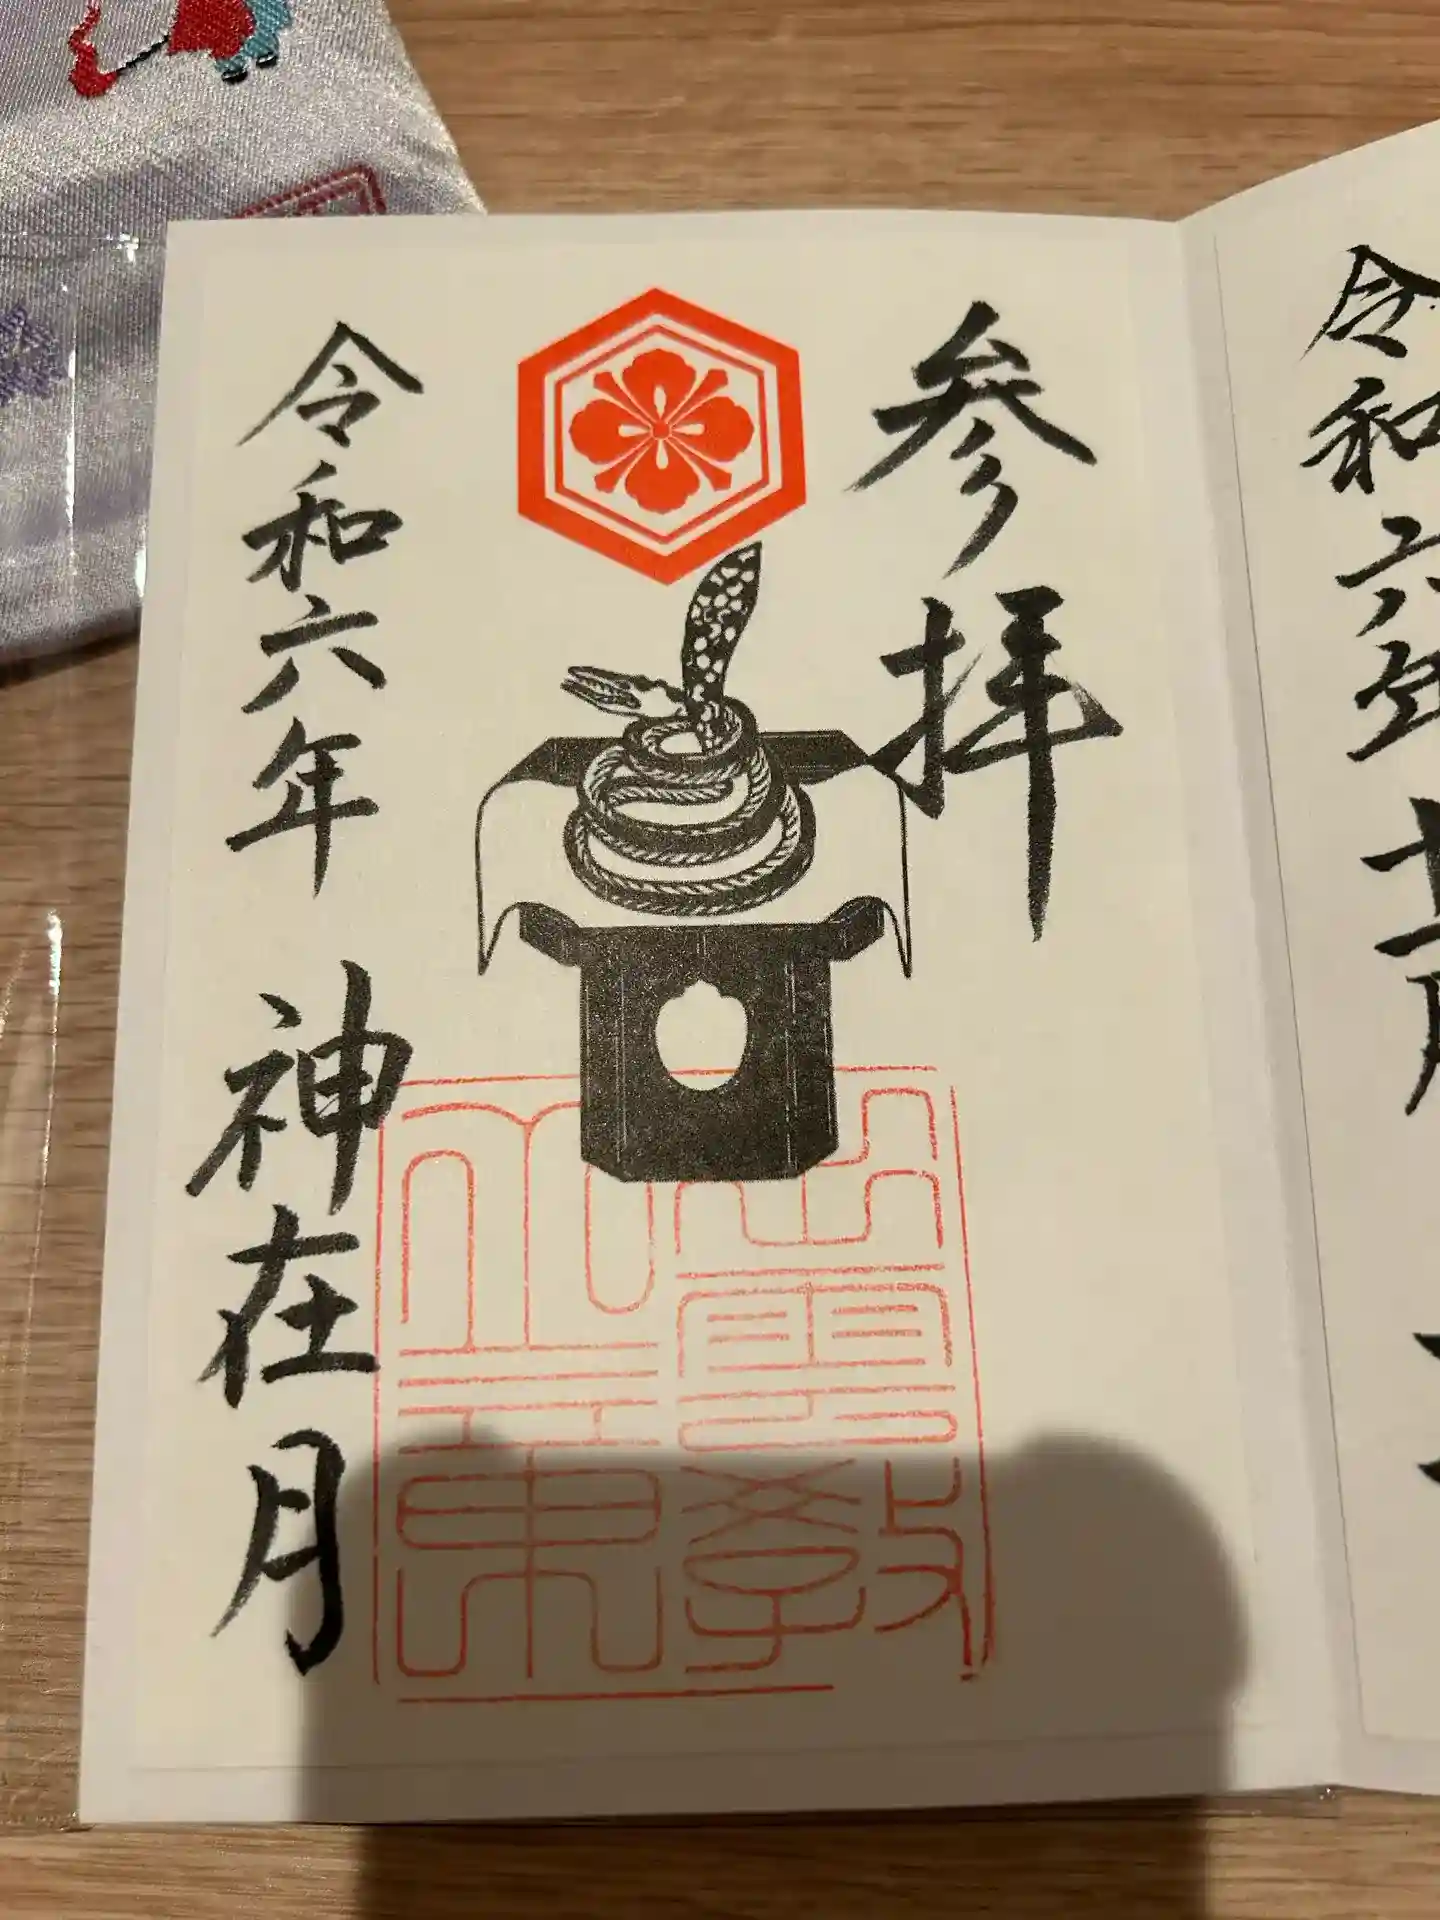 令和六年
参拝
令和六年 神在月
出雲教